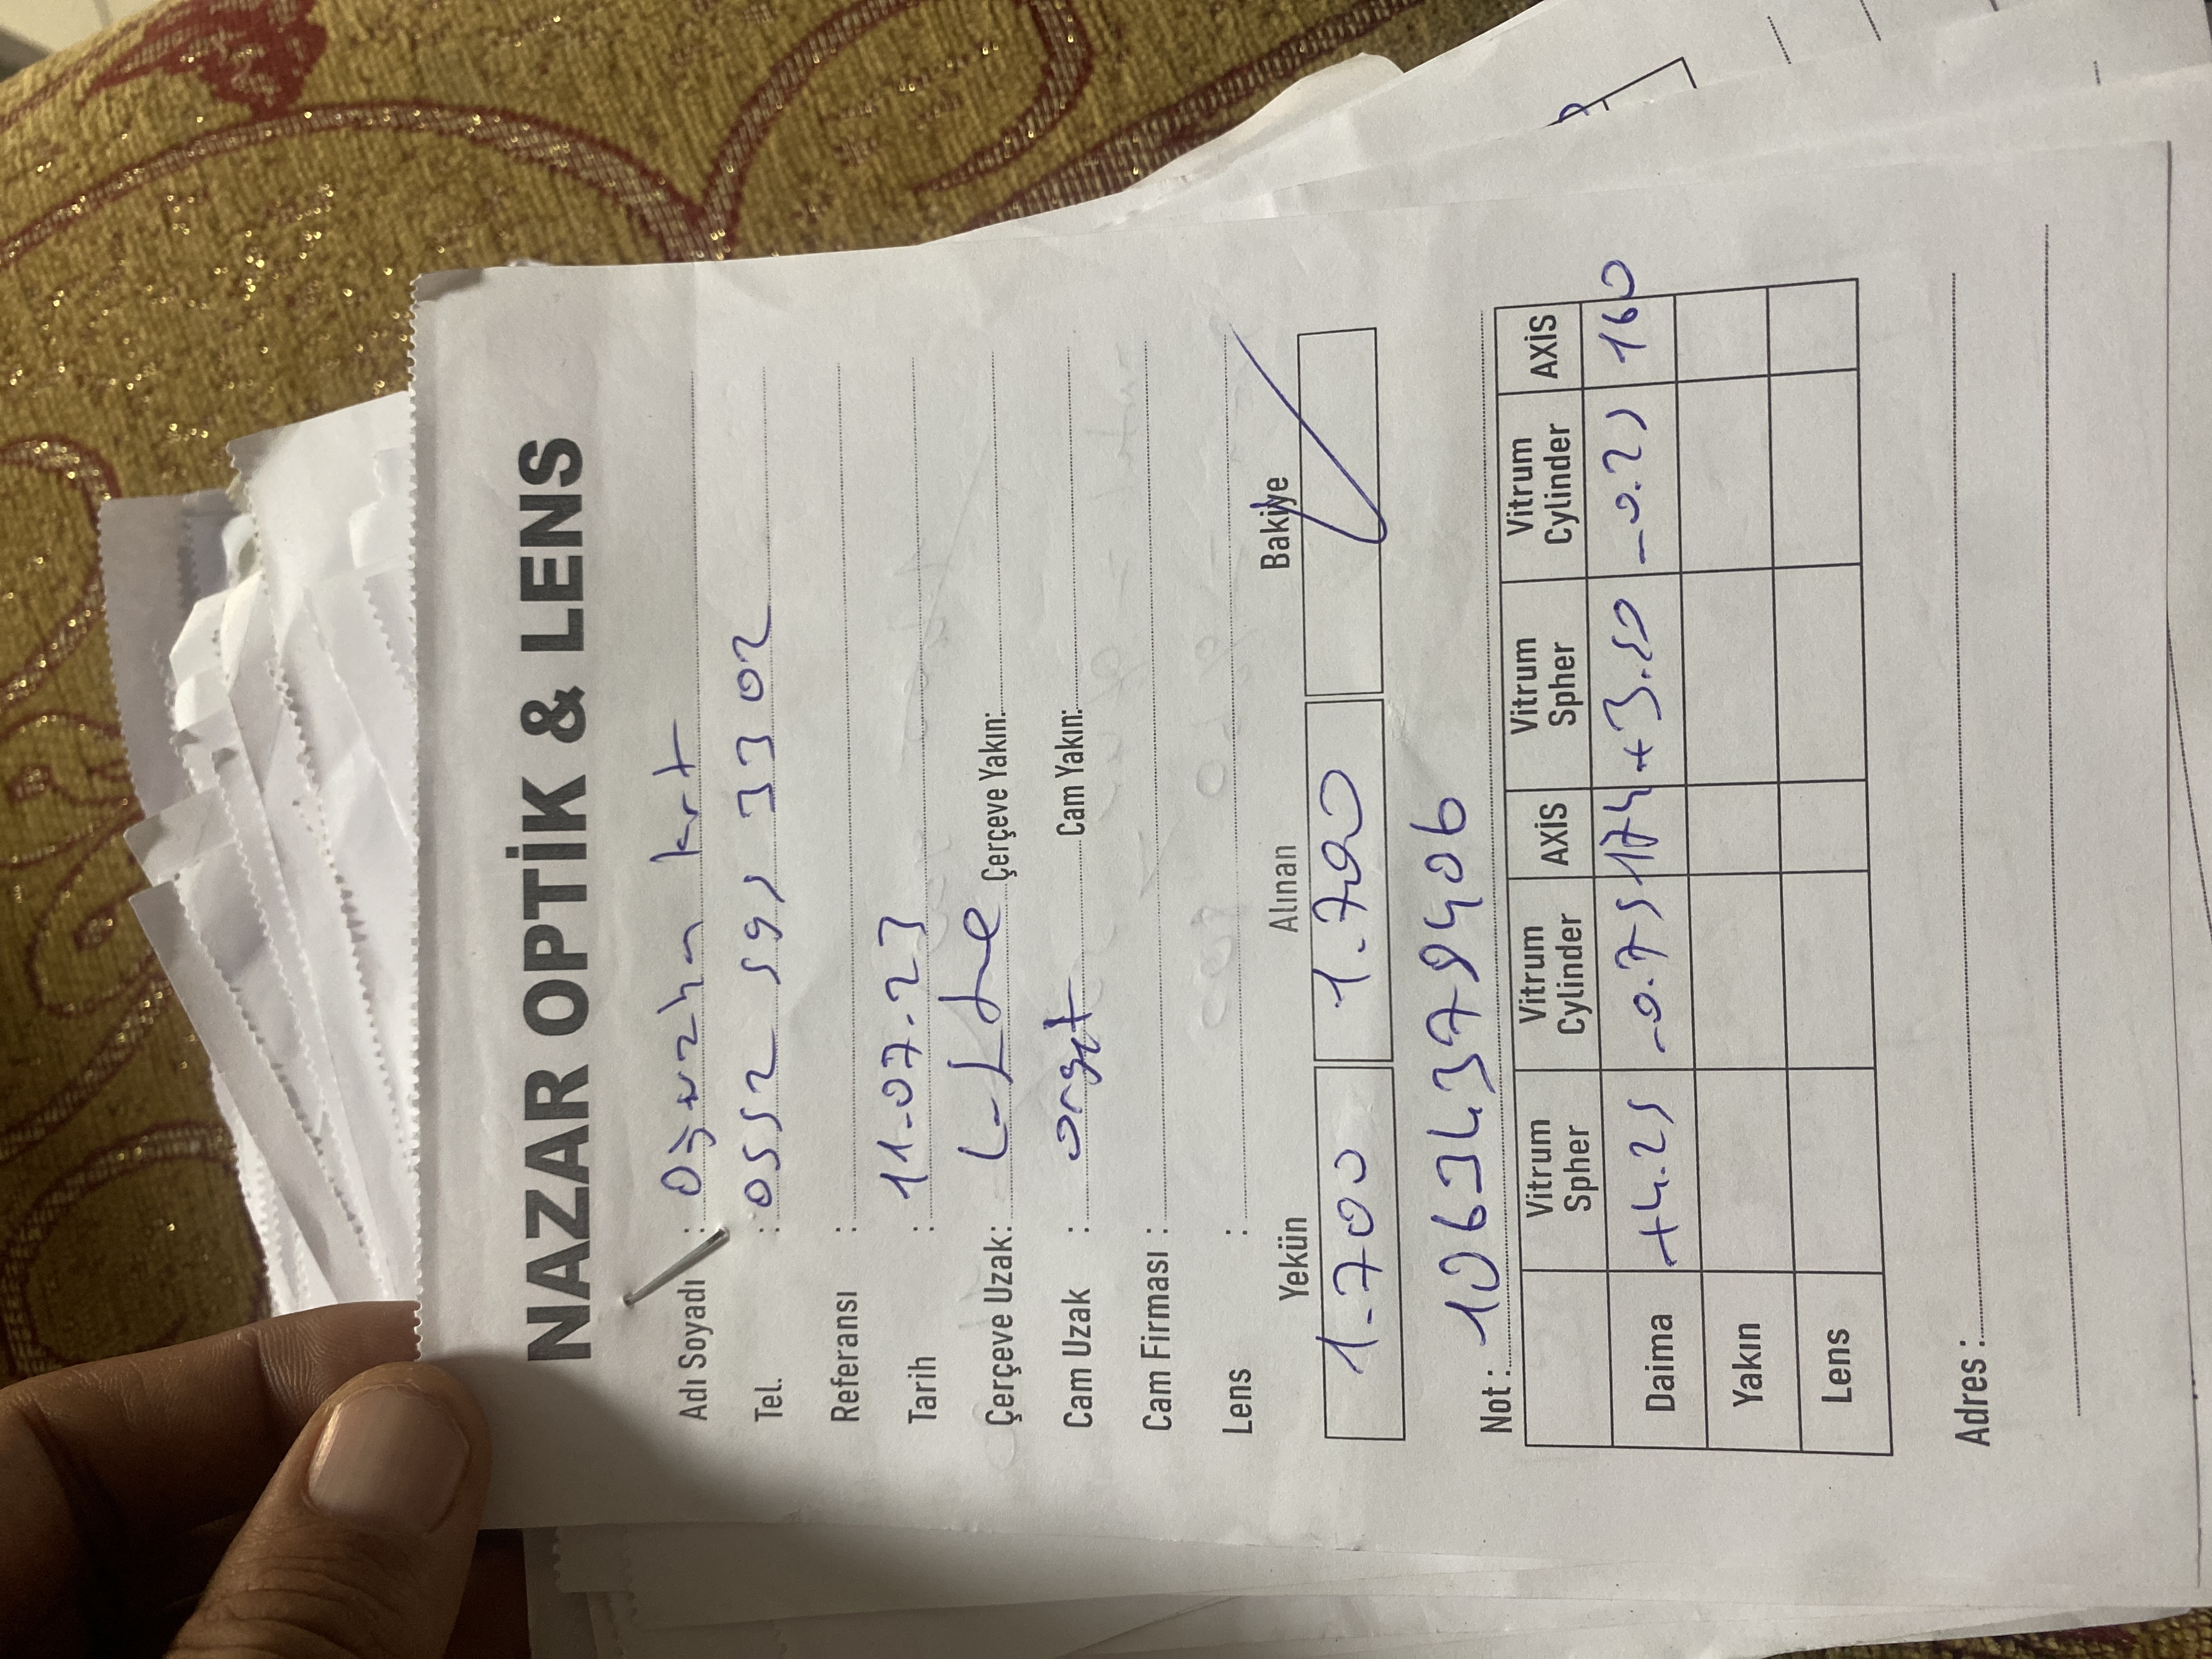 NAZAR OPTİK & LENS
Adı Soyadı : Oğuzhan kurt
Tel. : 0552 595 3302
Referansı :
Tarih : 11.07.23
Çerçeve Uzak: Çerçeve Yakın:
Cam Uzak : Cam Yakın:
Cam Firması :
Lens :
Yekün Alınan Bakiye
1.700 1.700
Not : 10634378406
Vitrum Spher Vitrum Cylinder AXİS Vitrum Spher Vitrum Cylinder AXİS
Daima +4.25 -0.75 174 +3.50 -0.25 160
Yakın
Lens
Adres :